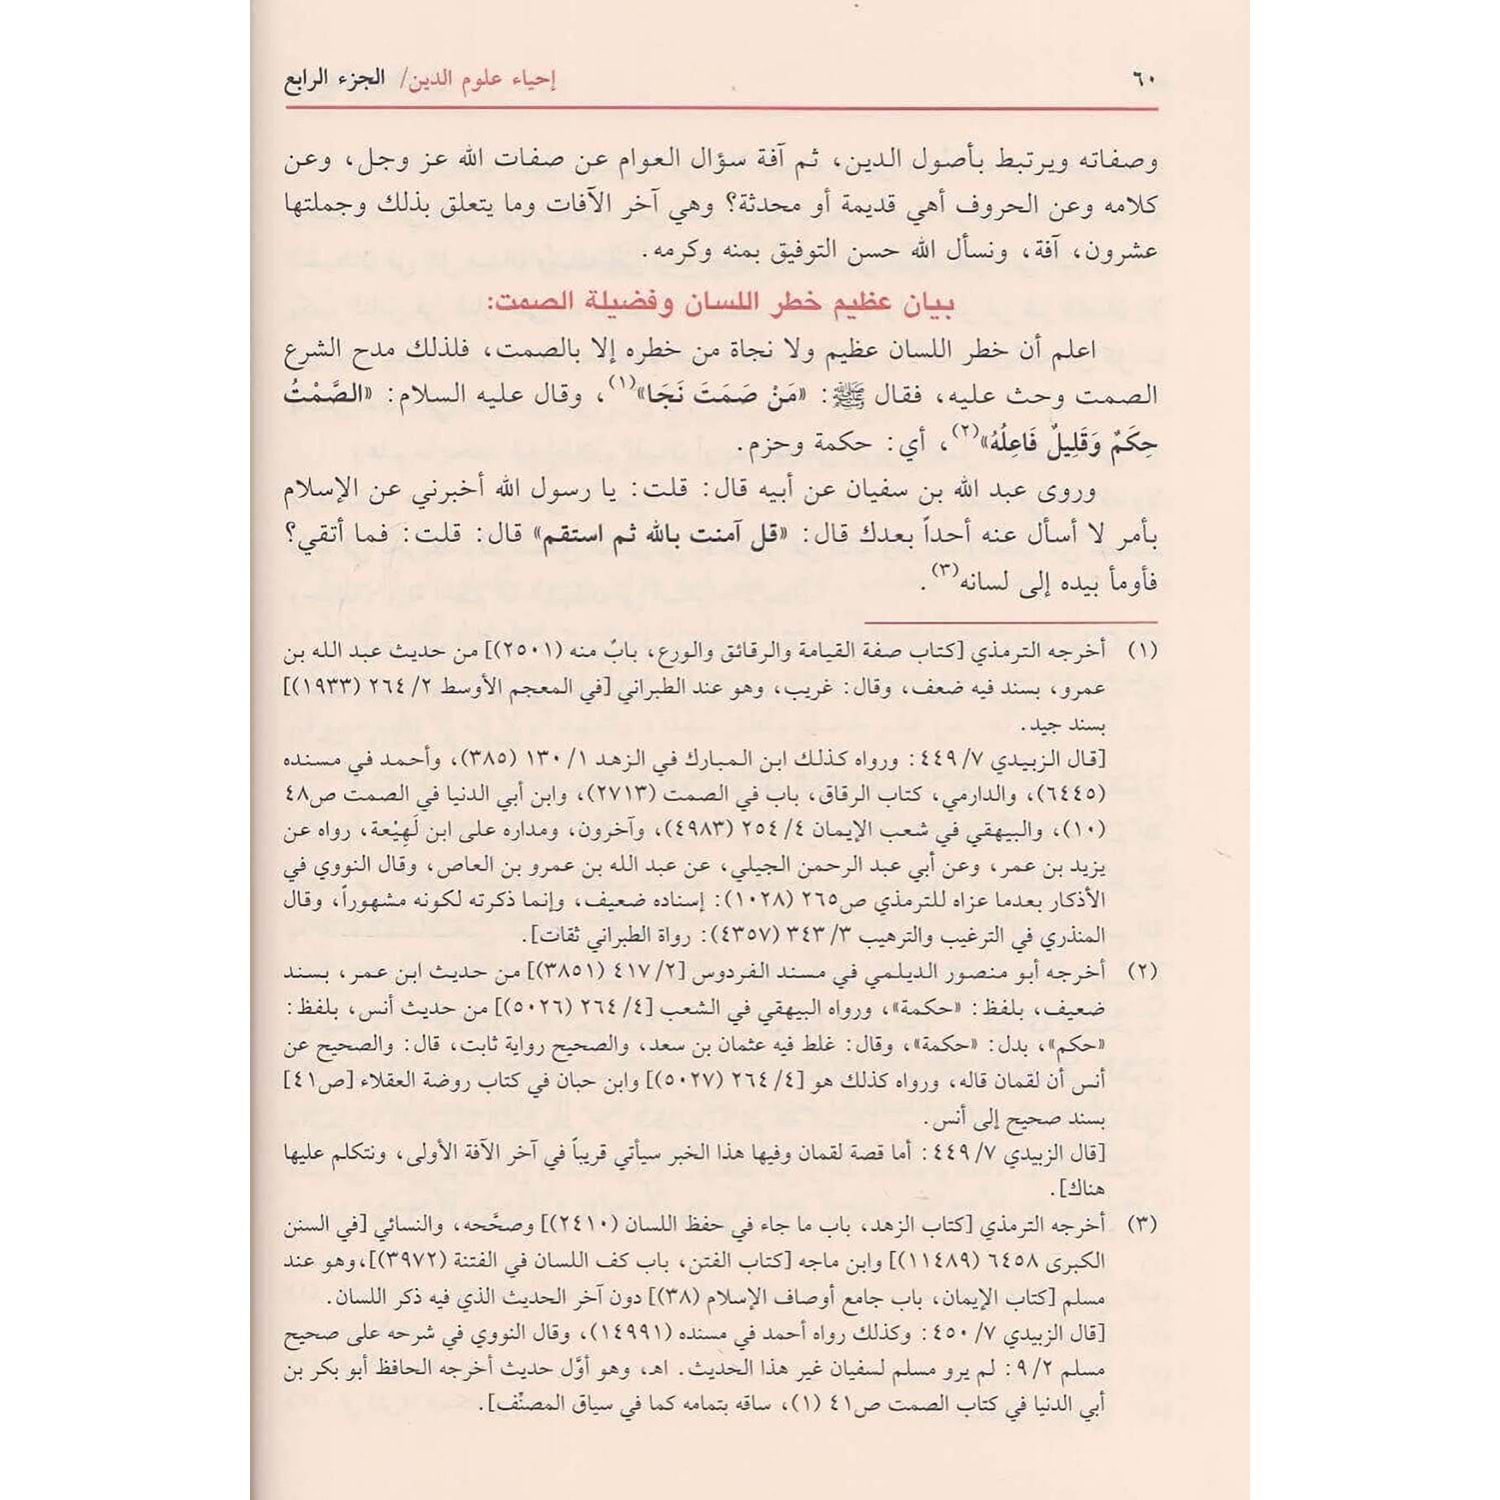 ٦٠
إحياء علوم الدين/ الجزء الرابع
وصفاته ويرتبط بأصول الدين، ثم آفة سؤال العوام عن صفات الله عز وجل، وعن
كلامه وعن الحروف أهي قديمة أو محدثة؟ وهي آخر الآفات وما يتعلق بذلك وجملتها
عشرون، آفة، ونسأل الله حسن التوفيق بمنه وكرمه.
بيان عظيم خطر اللسان وفضيلة الصمت:
اعلم أن خطر اللسان عظيم ولا نجاة من خطره إلا بالصمت، فلذلك مدح الشرع
الصمت وحث عليه، فقال ﷺ: «مَنْ صَمَتَ نَجَا»(١)، وقال عليه السلام: «الصَّمْتُ
حِكَمٌ وَقَلِيلٌ فَاعِلُهُ»(٢)، أي: حكمة وحزم.
وروى عبد الله بن سفيان عن أبيه قال: قلت: يا رسول الله أخبرني عن الإسلام
بأمر لا أسأل عنه أحداً بعدك قال: «قل آمنت بالله ثم استقم» قال: قلت: فما أتقي؟
فأومأ بيده إلى لسانه(٣).
(١) أخرجه الترمذي [كتاب صفة القيامة والرقائق والورع، بابٌ منه (٢٥٠١)] من حديث عبد الله بن
عمرو، بسند فيه ضعف، وقال: غريب، وهو عند الطبراني [في المعجم الأوسط ٢/ ٢٦٤ (١٩٣٣)]
بسند جيد.
[قال الزبيدي ٧/ ٤٤٩: ورواه كذلك ابن المبارك في الزهد ١/ ١٣٠ (٣٨٥)، وأحمد في مسنده
(٦٤٤٥)، والدارمي، كتاب الرقاق، باب في الصمت (٢٧١٣)، وابن أبي الدنيا في الصمت ص٤٨
(١٠)، والبيهقي في شعب الإيمان ٤/ ٢٥٤ (٤٩٨٣)، وآخرون، ومداره على ابن لَهِيْعة، رواه عن
يزيد بن عمر، وعن أبي عبد الرحمن الجيلي، عن عبد الله بن عمرو بن العاص، وقال النووي في
الأذكار بعدما عزاه للترمذي ص٢٦٥ (١٠٢٨): إسناده ضعيف، وإنما ذكرته لكونه مشهوراً، وقال
المنذري في الترغيب والترهيب ٣/ ٣٤٣ (٤٣٥٧): رواة الطبراني ثقات].
(٢) أخرجه أبو منصور الديلمي في مسند الفردوس [٢/ ٤١٧ (٣٨٥١)] من حديث ابن عمر، بسند
ضعيف، بلفظ: «حكمة»، ورواه البيهقي في الشعب [٤/ ٢٦٤ (٥٠٢٦)] من حديث أنس، بلفظ:
«حكم»، بدل: «حكمة»، وقال: غلط فيه عثمان بن سعد، والصحيح رواية ثابت، قال: والصحيح عن
أنس أن لقمان قاله، ورواه كذلك هو [٤/ ٢٦٤ (٥٠٢٧)] وابن حبان في كتاب روضة العقلاء [ص٤١]
بسند صحيح إلى أنس.
[قال الزبيدي ٧/ ٤٤٩: أما قصة لقمان وفيها هذا الخبر سيأتي قريباً في آخر الآفة الأولى، ونتكلم عليها
هناك].
(٣) أخرجه الترمذي [كتاب الزهد، باب ما جاء في حفظ اللسان (٢٤١٠)] وصحَّحه، والنسائي [في السنن
الكبرى ٦٤٥٨ (١١٤٨٩)] وابن ماجه [كتاب الفتن، باب كف اللسان في الفتنة (٣٩٧٢)]،وهو عند
مسلم [كتاب الإيمان، باب جامع أوصاف الإسلام (٣٨)] دون آخر الحديث الذي فيه ذكر اللسان.
[قال الزبيدي ٧/ ٤٥٠: وكذلك رواه أحمد في مسنده (١٤٩٩١)، وقال النووي في شرحه على صحيح
مسلم ٢/ ٩: لم يرو مسلم لسفيان غير هذا الحديث. اهـ، وهو أوَّل حديث أخرجه الحافظ أبو بكر بن
أبي الدنيا في كتاب الصمت ص٤١ (١)، ساقه بتمامه كما في سياق المصنِّف].